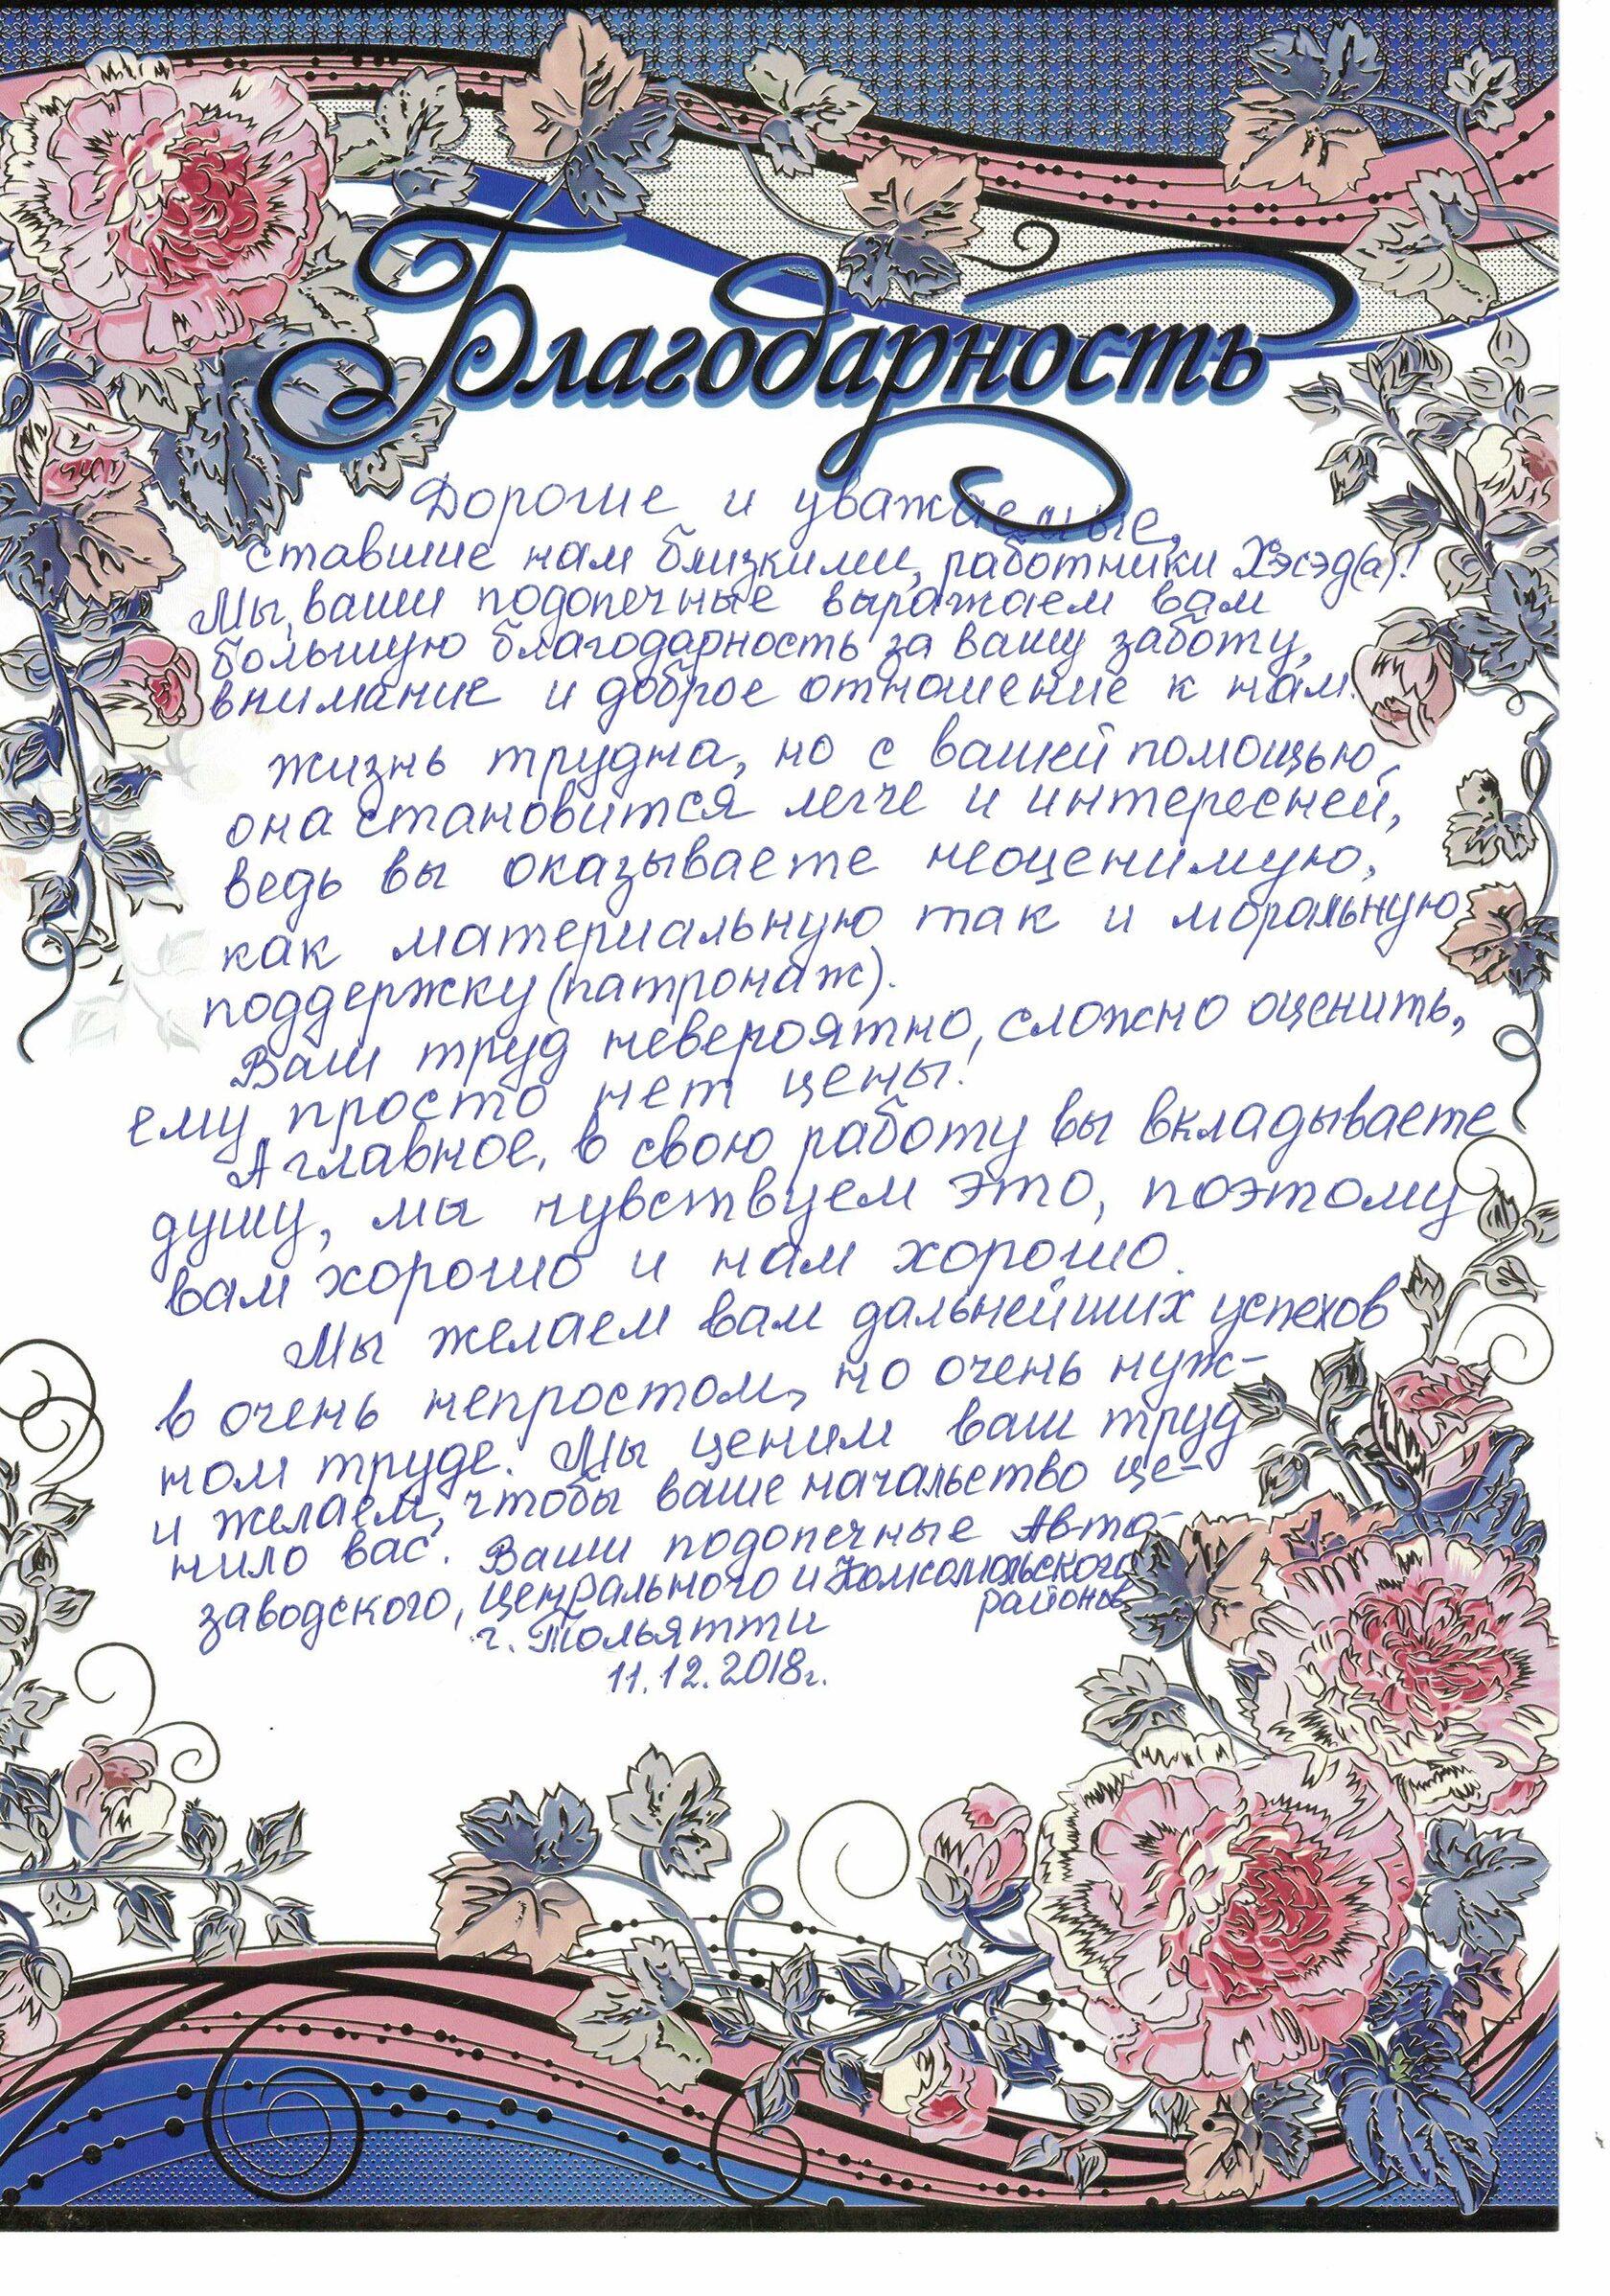 Благодарность
Дорогие и уважаемые,
ставшие нам близкими, работники Хэсэд(а)!
Мы, ваши подопечные выражаем вам
большую благодарность за вашу заботу,
внимание и доброе отношение к нам.
Жизнь трудна, но с вашей помощью,
она становится легче и интересней,
ведь вы оказываете неоценимую,
как материальную так и моральную
поддержку (патронаж).
Ваш труд невероятно, сложно оценить,
ему просто нет цены!
А главное, в свою работу вы вкладываете
душу, мы чувствуем это, поэтому
вам хорошо и нам хорошо.
Мы желаем вам дальнейших успехов
в очень непростом, но очень нуж-
ном труде. Мы ценим ваш труд
и желаем, чтобы ваше начальство це-
нило вас. Ваши подопечные Авто-
заводского, центрального и Комсомольского
районов
г. Тольятти
11.12.2018г.